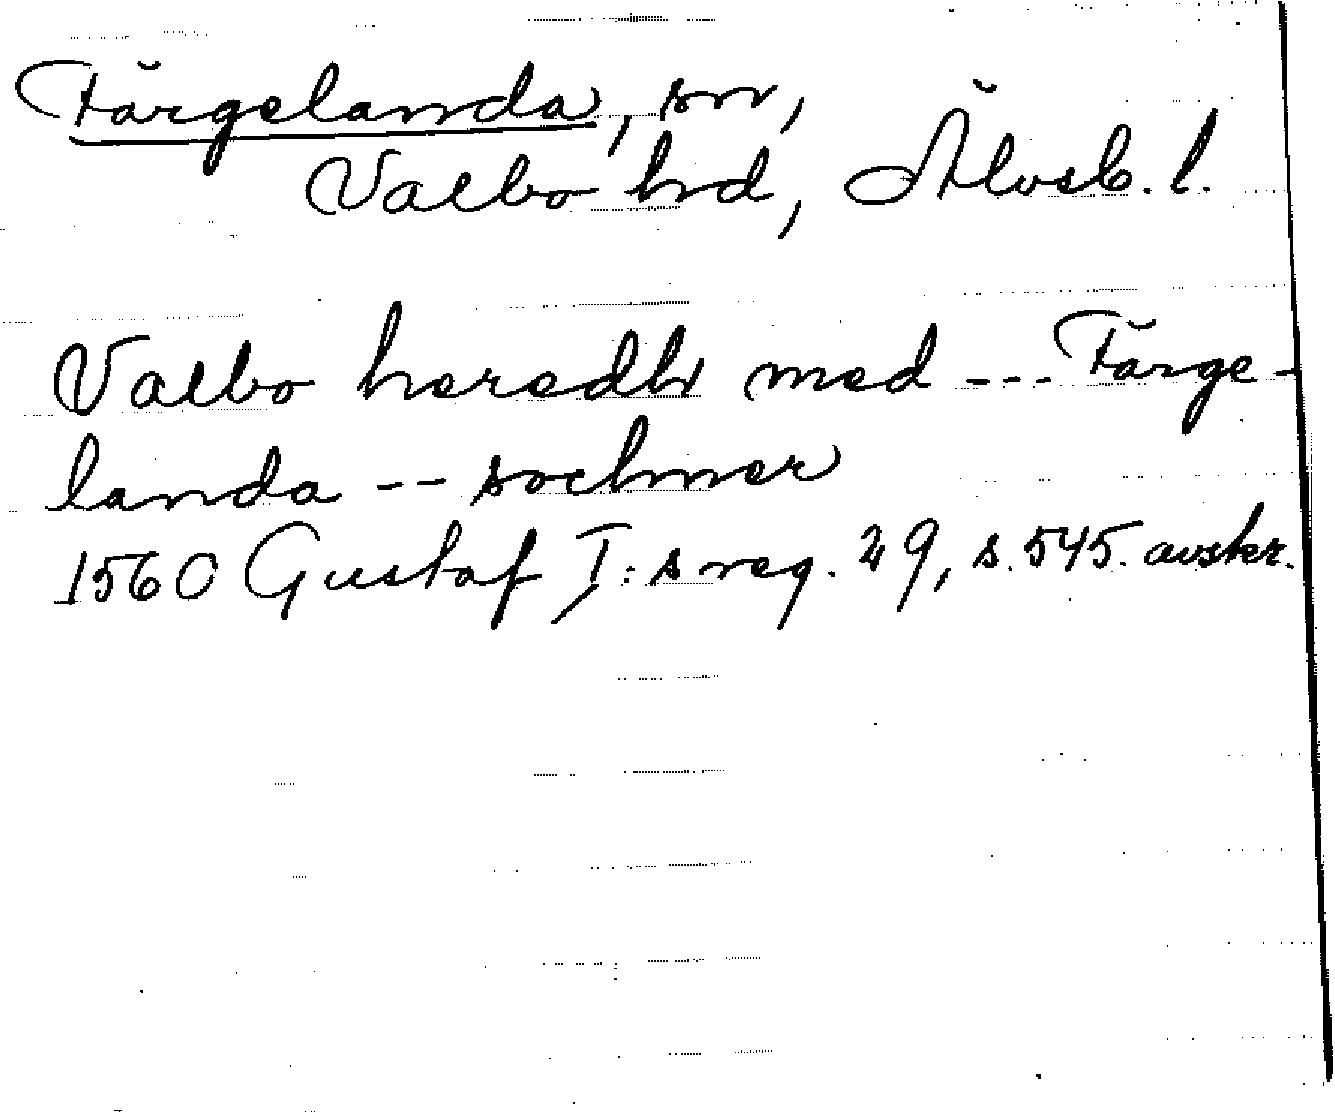 Färgelanda, sn,
Valbo hd, Älvsb. l.
Valbo heredh med --- Färge-
landa -- sochner
1560 Gustaf I:s reg. 29, s. 545. avskr.